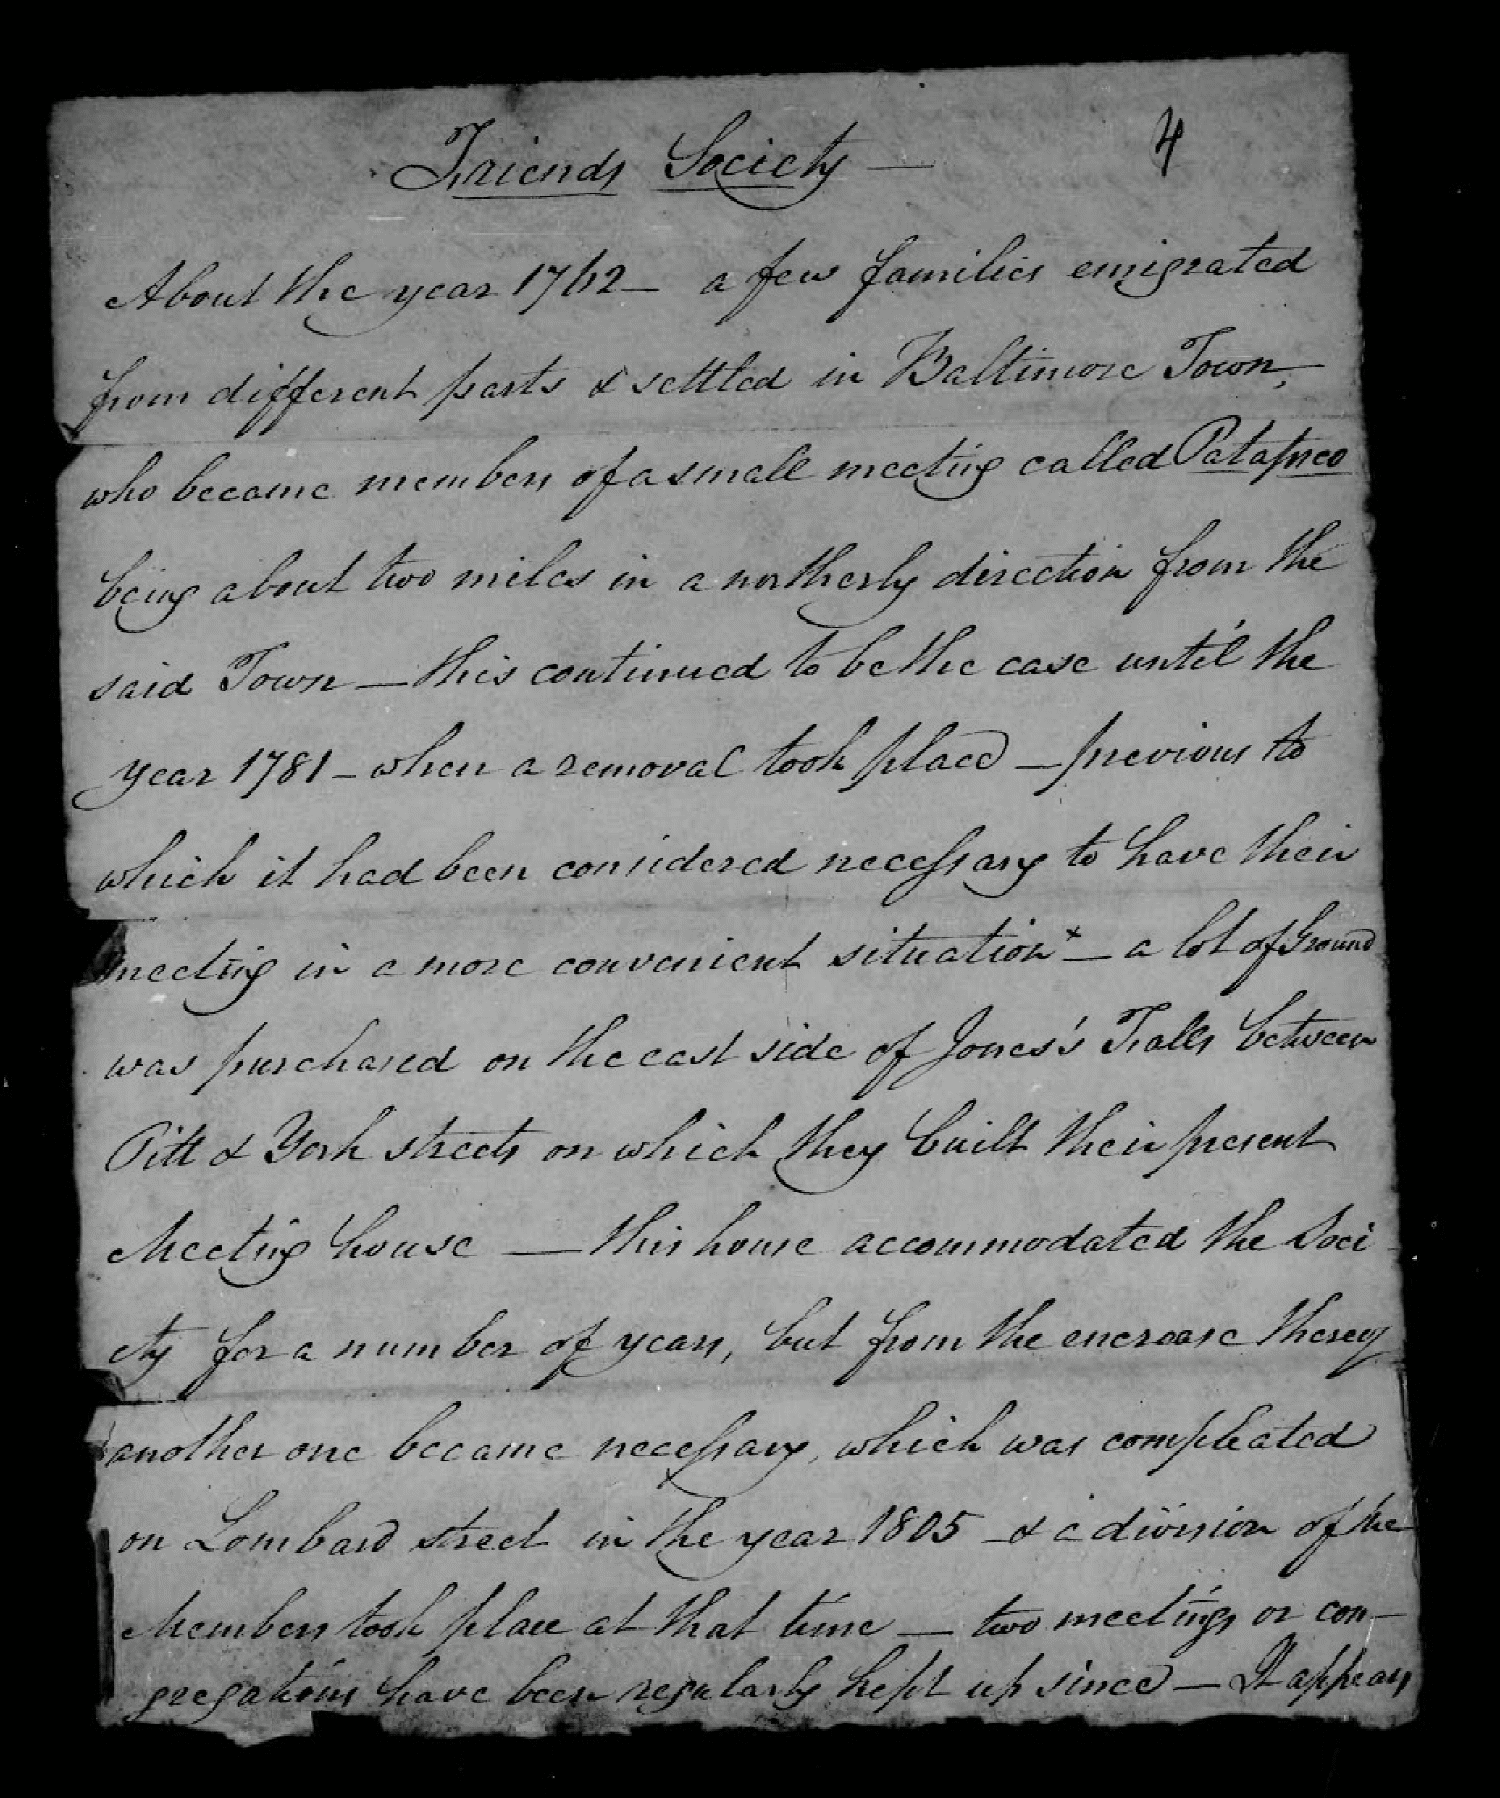 Friends Society —
4
About the year 1762 — a few families emigrated
from different parts & settled in Baltimore Town,
who became members of a small meeting called Patapsco
being about two miles in a northerly direction from the
said Town — this continued to be the case until the
year 1781 — when a removal took place — previous to
which it had been considered necessary to have their
meeting in a more convenient situation x — a lot of Ground
was purchased on the east side of Jones's Falls between
Pitt & York streets on which they built their present
Meeting house — this house accommodated the Soci-
ety for a number of years, but from the encrease thereof
another one became necessary, which was compleated
on Lombard street in the year 1805 — & a division of the
Members took place at that time — two meetings or con-
gregations have been regularly kept up since — It appears